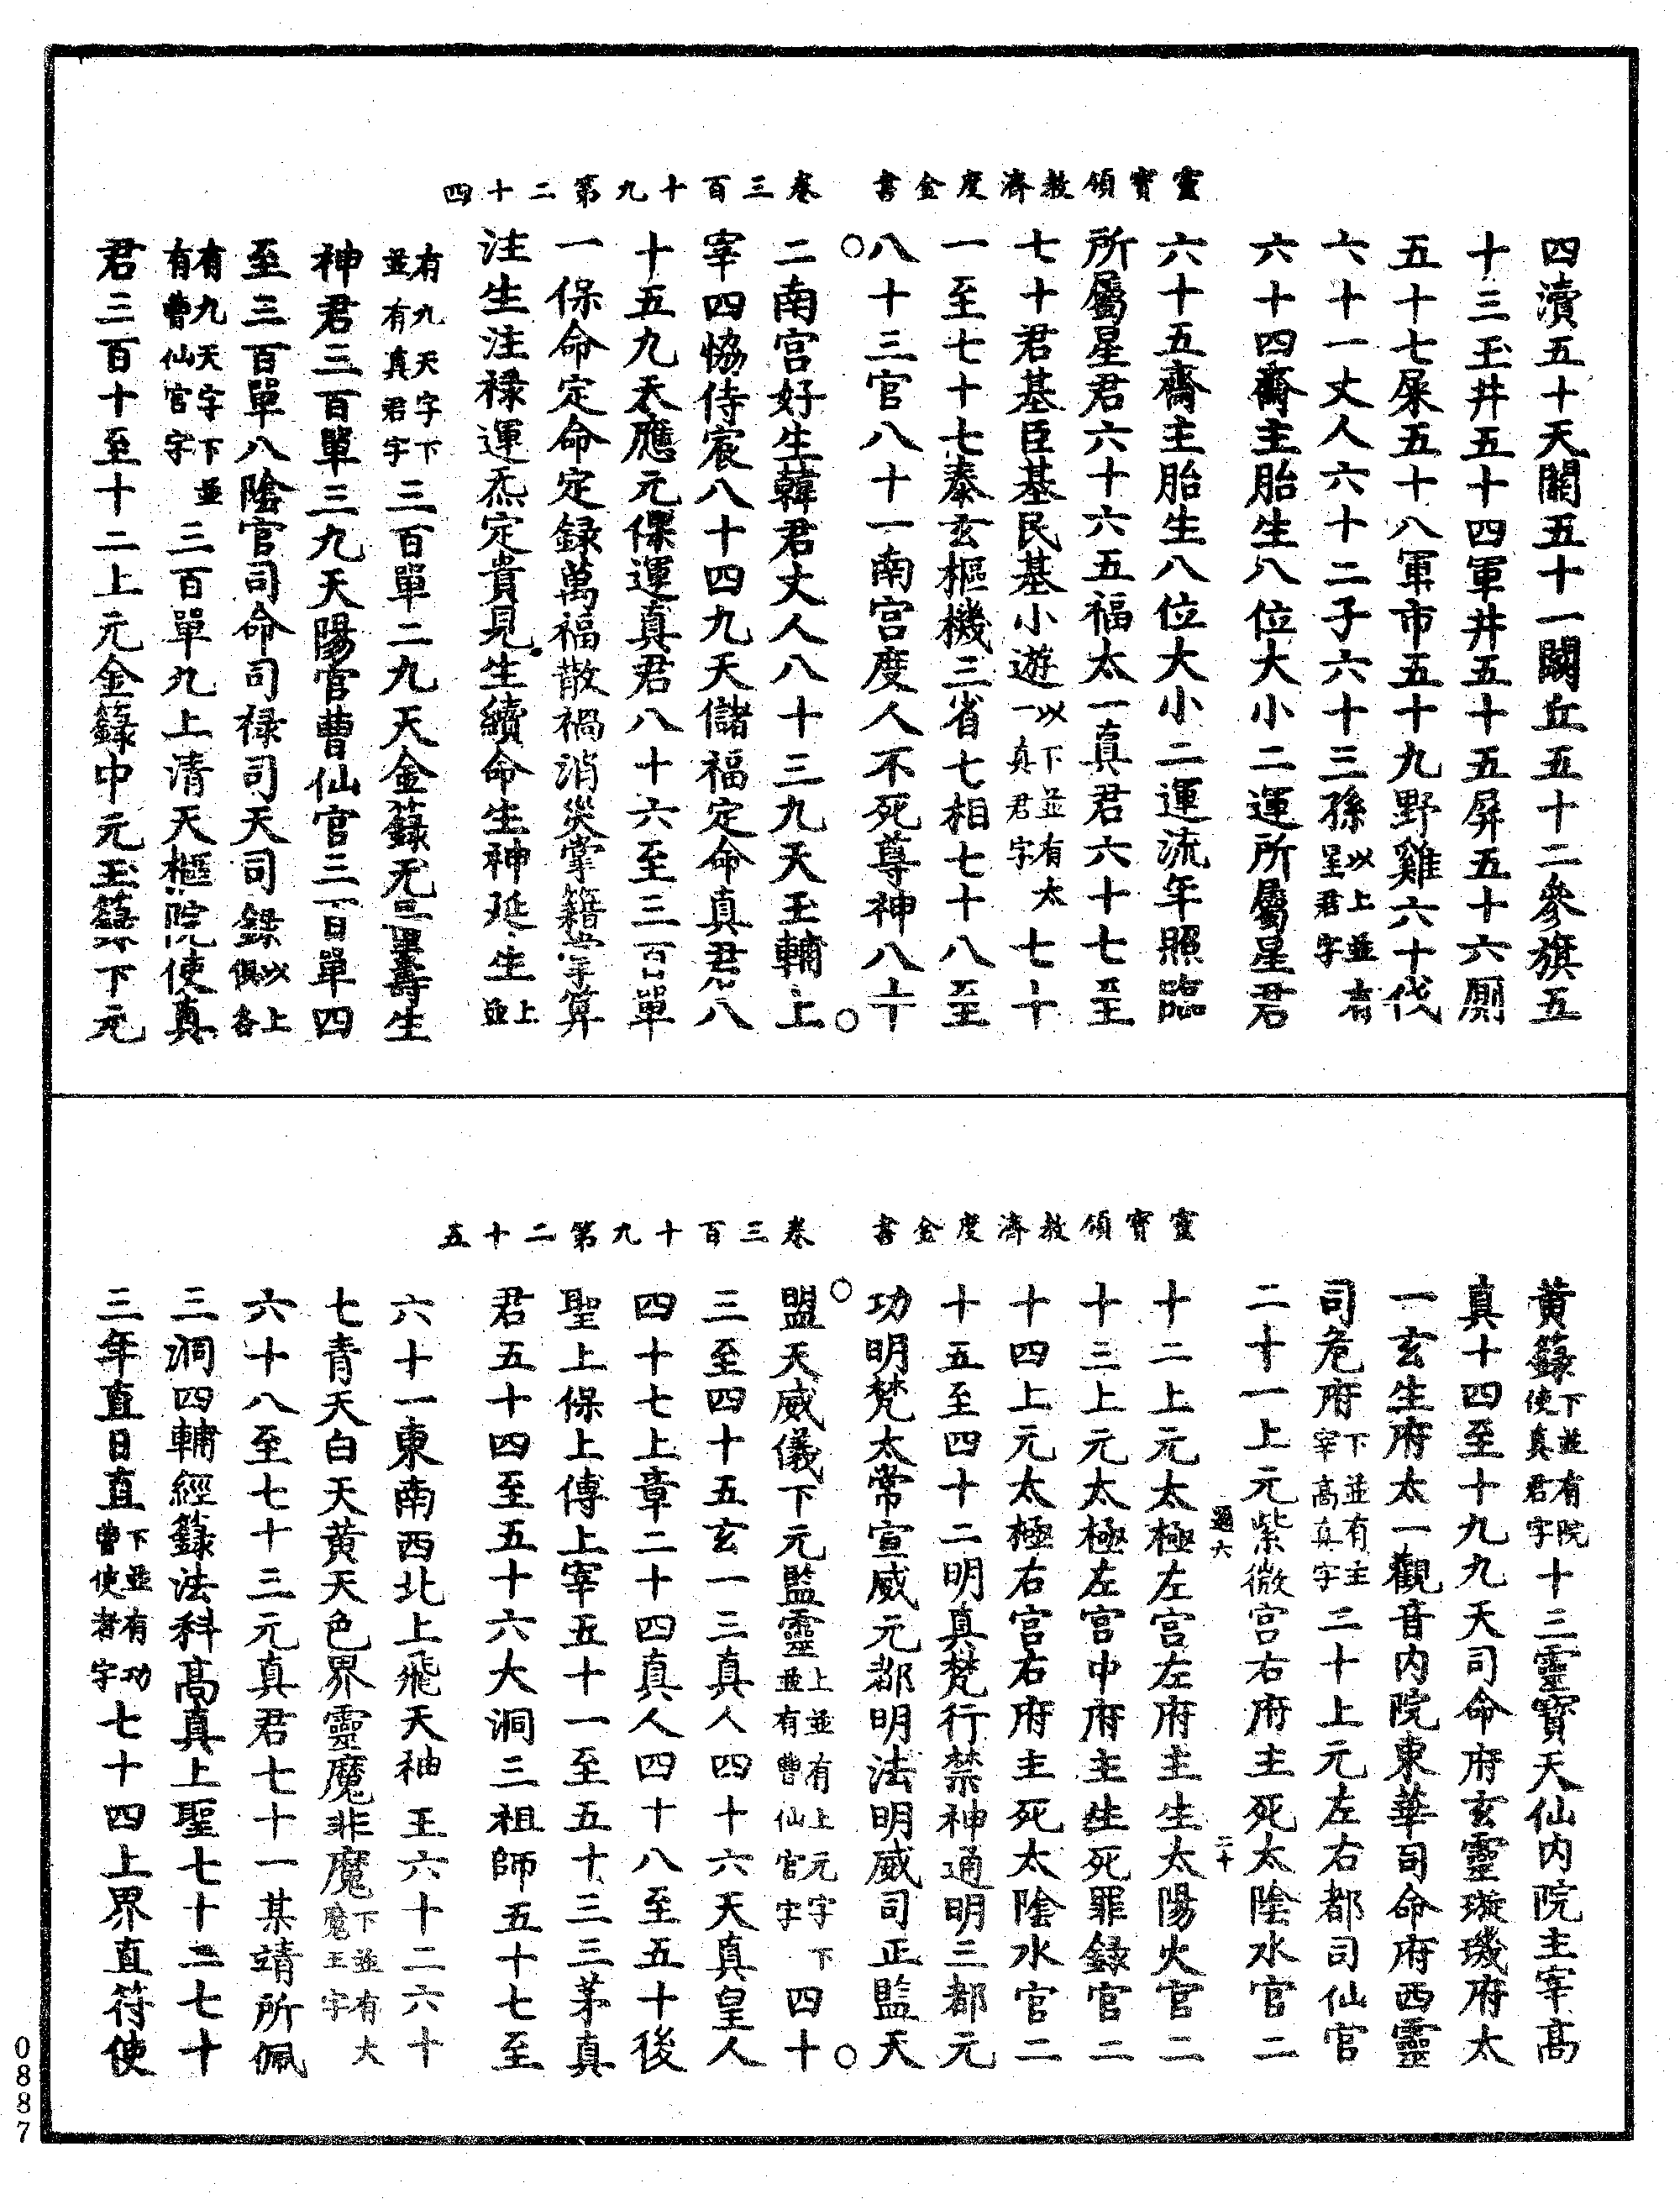 靈寶領教濟度金書　卷三百十九第二十四
四瀆五十天關五十一闕丘五十二參旗五
十三玉井五十四軍井五十五屏五十六厠
五十七屎五十八軍市五十九野雞六十伐
六十一丈人六十二子六十三孫以上並有星君字
六十四齋主胎生八位大小二運所屬星君
六十五齋主胎生八位大小二運流年照臨
所屬星君六十六五福太一真君六十七至
七十君基臣基民基小遊以下並有太一真君字七十
一至七十七泰玄樞機三省七相七十八至
八十三官八十一南宮度人不死尊神八十
二南宮好生韓君丈人八十三九天玉輔上
宰四恊侍宸八十四九天儲福定命真君八
十五九天應元保運真君八十六至三百單
一保命定命定錄萬福散禍消災掌籍掌算
注生注祿運炁定貴見生續命生神延生上並
有九天字下並有真君字三百單二九天金籙元皇壽生
神君三百單三九天陽官曹仙官三百單四
至三百單八陰官司命司祿司天司錄以上俱各
有九天字下並有曹仙官字三百單九上清天樞院使真
君三百十至十二上元金籙中元玉籙下元
靈寶領教濟度金書　卷三百十九第二十五
黃籙下並有院使真君字十三靈寶天仙內院主宰高
真十四至十九九天司命府玄靈璇璣府太
一玄生府太一觀音內院東華司命府西靈
司危府下並有主宰高真字二十上元左右都司仙官
二十一上元紫微宮右府主死太陰水官二
十二上元太極左宮左府主生太陽火官二
十三上元太極左宮中府主生死罪錄官二
十四上元太極右宮右府主死太陰水官二
十五至四十二明真梵行禁神通明三都元
功明梵太常宣威元都明法明威司正監天
盟天威儀下元監靈上並有上元字下並有曹仙官字四十
三至四十五玄一三真人四十六天真皇人
四十七上章二十四真人四十八至五十後
聖上保上傅上宰五十一至五十三三茅真
君五十四至五十六大洞三祖師五十七至
六十一東南西北上飛天神王六十二六十
七青天白天黃天色界靈魔非魔下並有大魔王字
六十八至七十三元真君七十一某靖所佩
三洞四輔經籙法科高真上聖七十二七十
三年直日直下並有功曹使者字七十四上界直符使
通六
二十
0887